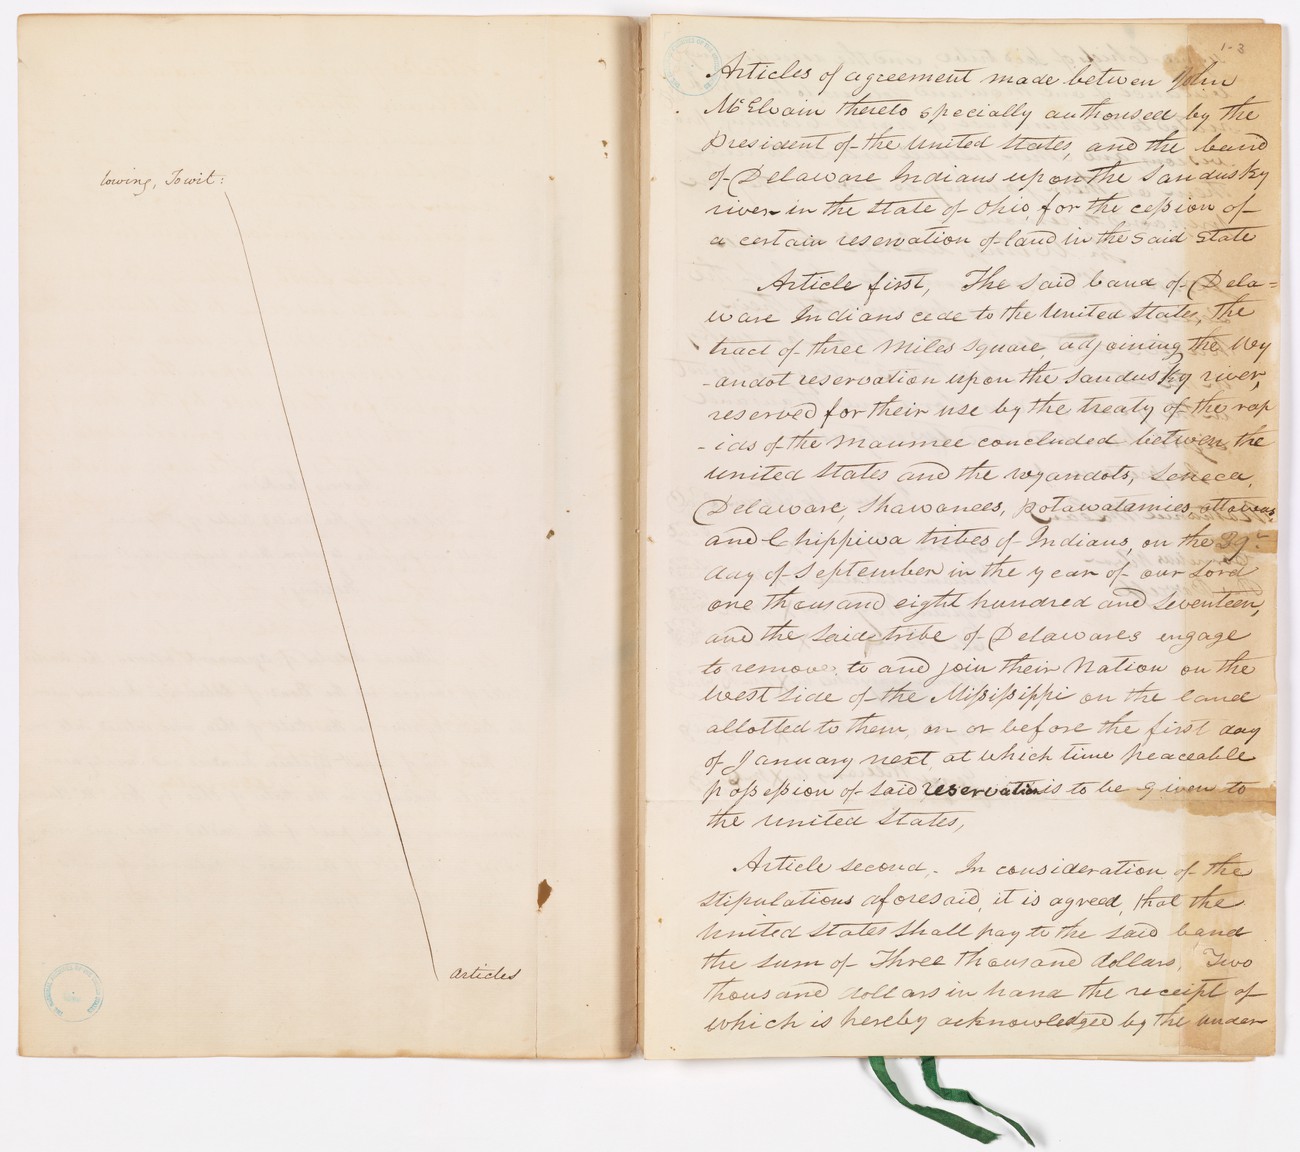 lowing, Towit:
Articles
1-3
Articles of agreement made betwen John
McElvain thereto specially authorised by the
President of the United States, and the band
of Delaware Indians upon the Sandusky
river in the State of Ohio, for the cession of
a certain reservation of land in the said State
Article first, The said band of Dela=
ware Indians cede to the United States, the
tract of three Miles square, adjoining the Wy
-andot reservation upon the Sandusky river,
reserved for their use by the treaty of the rap
-ids of the Maumee concluded between the
United States and the Wyandots, Seneca,
Delaware, Shawonees, Potawatamies, ottowas,
and Chippiwa tribes of Indians, on the 29th
day of September in the year of our Lord
one thousand eight hundred and seventeen,
and the said tribe of Delawares engage
to remove to and join their Nation on the
west side of the Mississippi on the land
allotted to them, on or before the first day
of January next, at which time peaceable
possession of said reservation is to be given to
the United States,
Article second,. In consideration of the
stipulations aforesaid, it is agreed, that the
United States shall pay to the said band
the sum of Three thousand dollars, Two
thousand dollars in hand the receipt of
which is hereby acknowledged by the under-